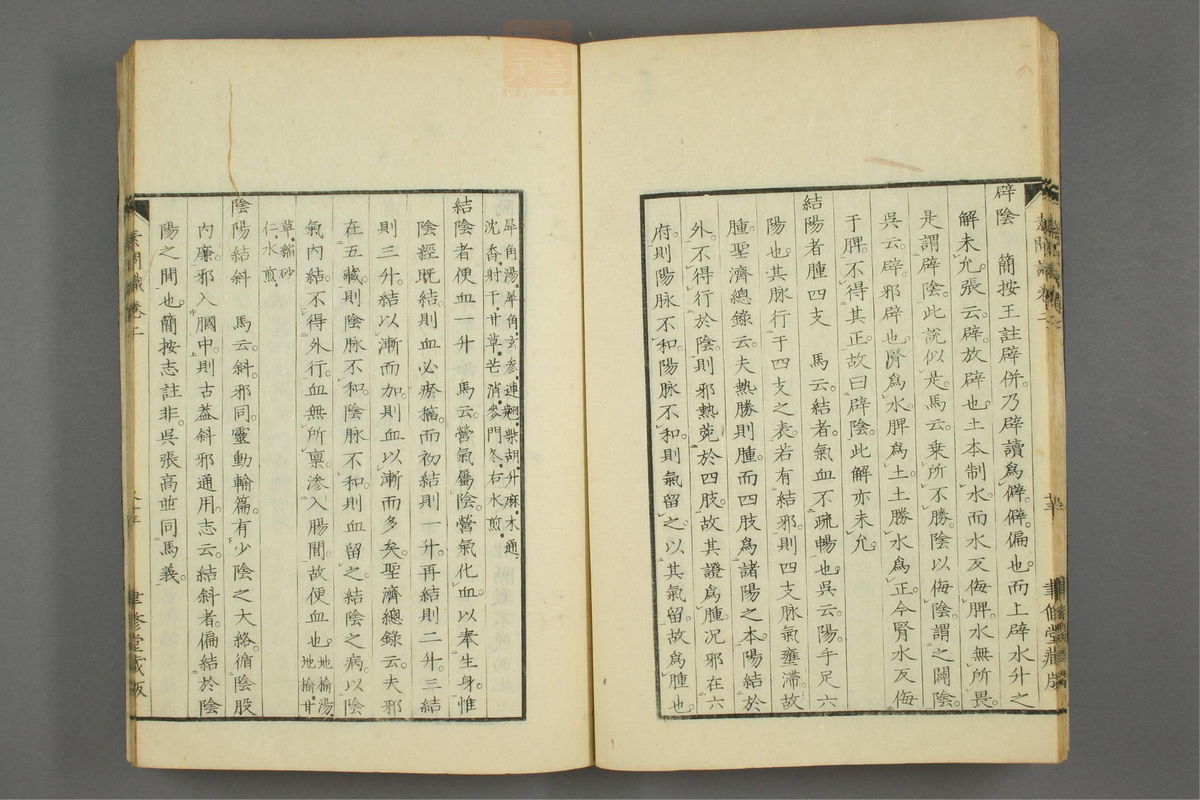 辟陰　簡按王註辟併乃辟讀爲僻僻偏也而上辟水升之
解未允張云辟放辟也土本制水而水反侮脾水無所畏
是謂辟陰此說似是馬云乘所不勝陰以侮陰謂之闢陰
吳云辟邪辟也腎爲水脾爲土土勝水爲正今腎水反侮
于脾不得其正故曰辟陰此解亦未允
結陽者腫四支　馬云結者氣血不疏暢也吳云陽手足六
陽也其脉行于四支之表若有結邪則四支脉氣壅滯故
腫聖濟總錄云夫熱勝則腫而四肢爲諸陽之本陽結於
外不得行於陰則邪熱菀於四肢故其證爲腫況邪在六
府則陽脉不和陽脉不和則氣留之以其氣留故爲腫也
犀角湯犀角玄參連翹柴胡升麻木通
沈香射干甘草芒消麥門冬右水煎
結陰者便血一升　馬云營氣屬陰營氣化血以奉生身惟
陰經既結則血必瘀穡而初結則一升再結則二升三結
則三升結以漸而加則血以漸而多矣聖濟總錄云夫邪
在五藏則陰脉不和陰脉不和則血留之結陰之病以陰
氣內結不得外行血無所稟滲入腸間故便血也地榆湯
地榆甘
草縮砂
仁水煎
陰陽結斜　馬云斜邪同靈動輸篇有少陰之大絡循陰股
內廉邪入膕中則古蓋斜邪通用志云結斜者偏結於陰
陽之間也簡按志註非吳張高並同馬義
素問識卷二
聿修堂藏版